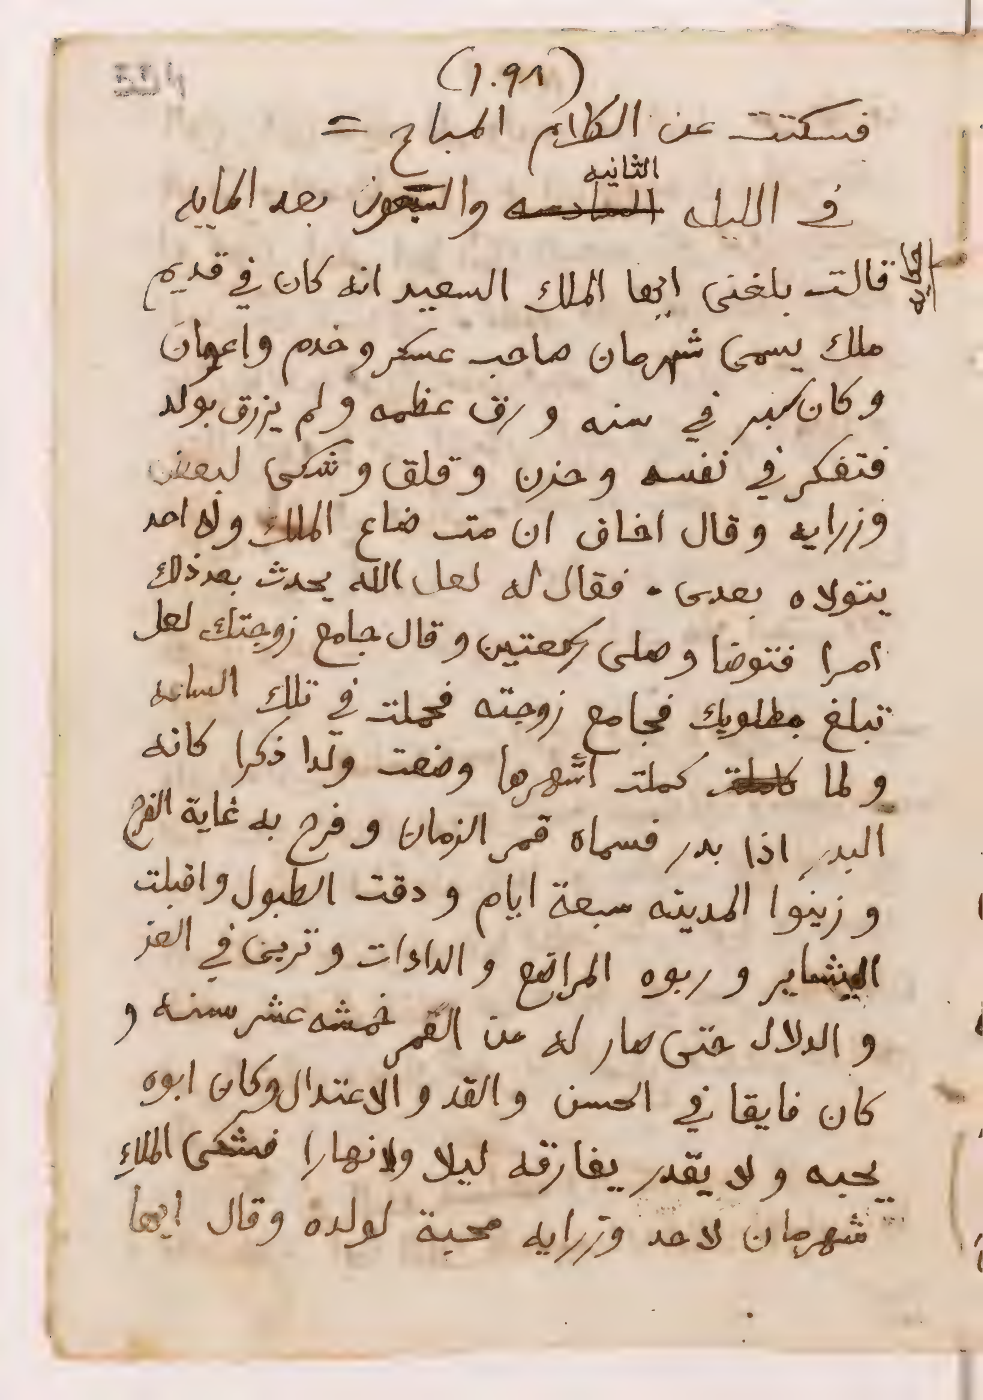 (١٠٩٨)
فسكتت عن الكلام المباح =
الثانيه
في الليله السادسه والسبعون بعد المايه
حكايه
قالت بلغنى ايها الملك السعيد انه كان في قديم
ملك يسمى شهرمان صاحب عسكر وخدم واعوان
وكان كبر في سنه ورق عظمه ولم يزرق بولد
فتفكر في نفسه وحزن وقلق وشكى لبعض
وزرايه وقال اخاف ان مت ضاع الملك ولا احد
يتولاه بعدى . فقال له لعل الله يحدث بعد ذلك
امرا فتوضا وصلى ركعتين وقال جامع زوجتك لعل
تبلغ مطلوبك فجامع زوجته فحملت في تلك الساعه
ولما كاملت كملت اشهرها وضعت ولدا ذكرا كانه
البدر اذا بدر فسماه قمر الزمان وفرح به غاية الفرح
وزينوا المدينه سبعة ايام ودقت الطبول واقبلت
البشاير وربوه المراضع والدادات وتربى في العز
والدلال حتى صار له من القمر خمشه عشر سنه و
كان فايقا في الحسن والقد والاعتدال وكان ابوه
يحبه ولا يقدر يفارقه ليلا ولانهارا فشكى الملك
شهرمان لاحد وزرايه محبة لولده وقال ايها